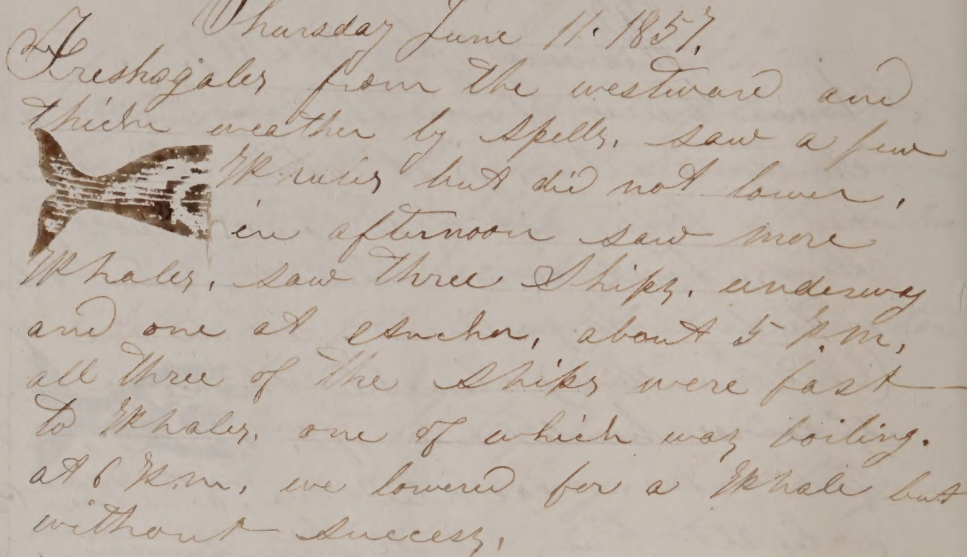 Thursday June 11. 1857.
Fresh gales from the westward and
thick weather by spells. saw a few
but did not lower.
in afternoon saw more
Whales. saw three Ships. underway
and one at anchor. about 5 P.M.
all three of the Ships were fast
to Whales. one of which was boiling.
at 6 P.m. we lowered for a Whale but
without success.